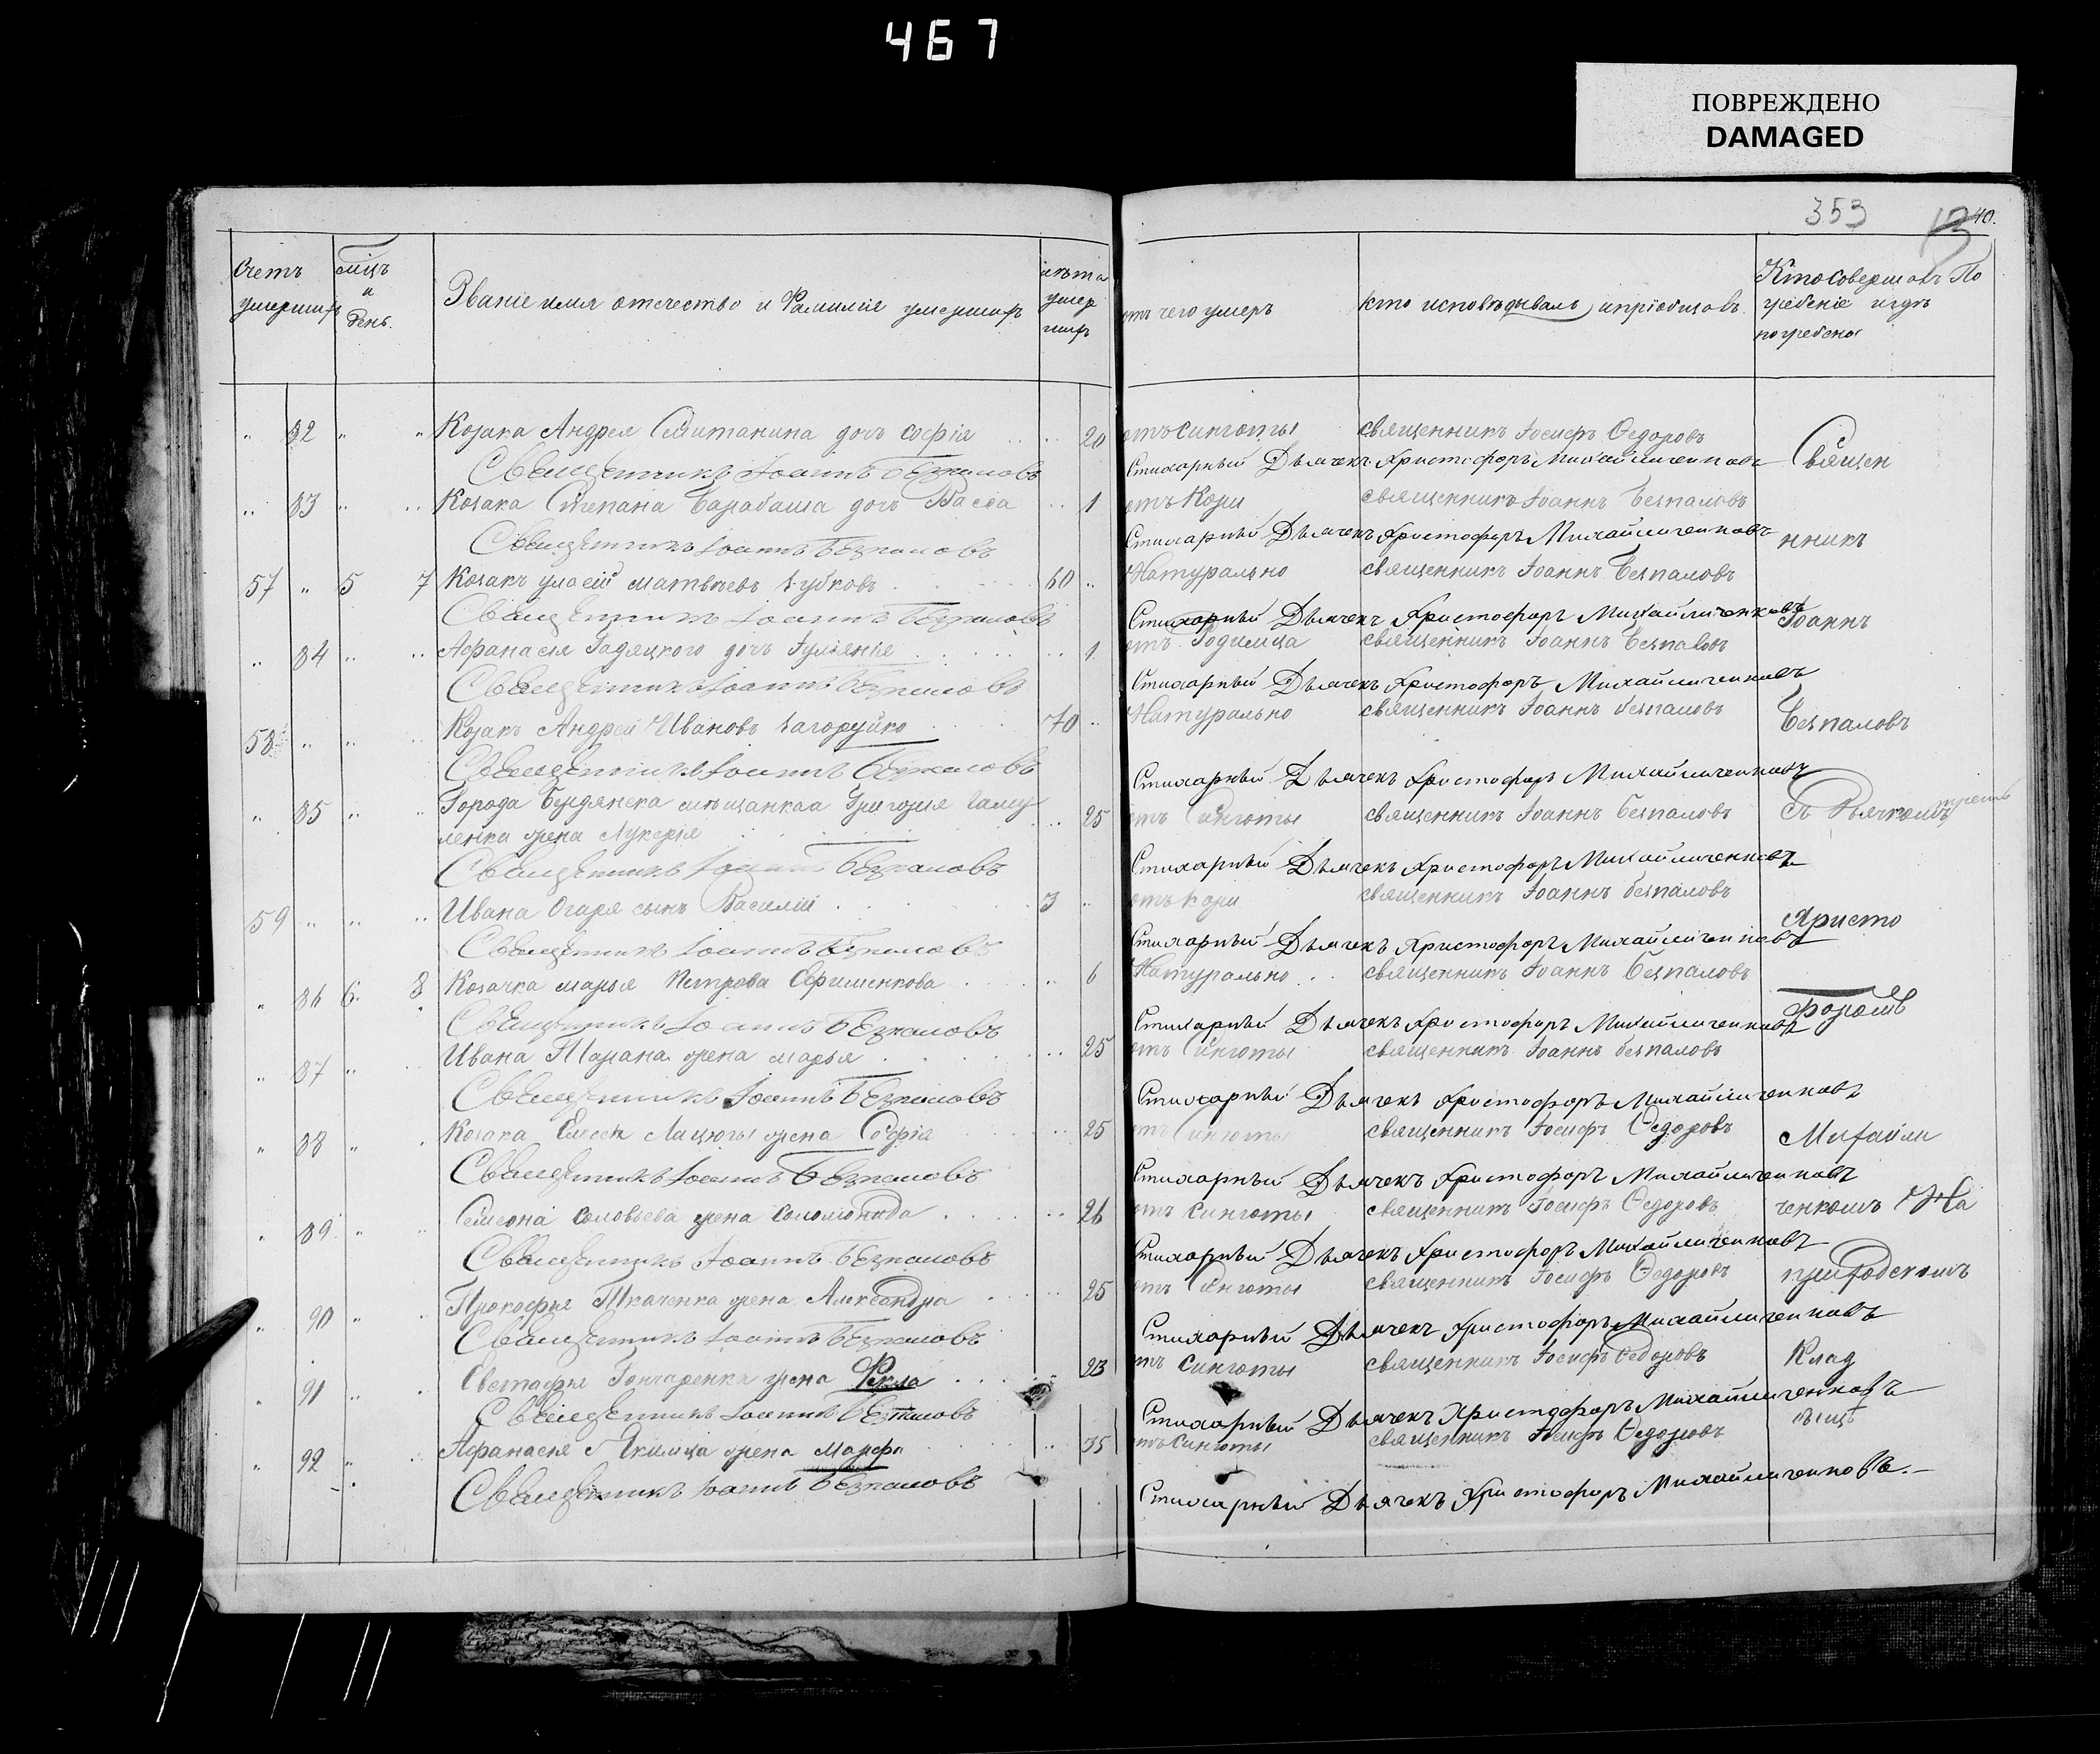 467
ПОВРЕЖДЕНО
DAMAGED
353
40.
Счетъ умершихъ
мцъ и день.
Званіе имя отечество и Фамилія умершихъ
лѣта умершихъ
отъ чего умеръ
кто исповѣдывалъ и пріобщалъ
Кто совершалъ Погребеніе и гдѣ погребены
" 82 " " Козака Андрея дочь Софія 20 отъ синготы священникъ Іосифъ Ѳедоровъ
Священникъ Іоаннъ Безпаловъ Стихарный Дьячекъ Христофоръ Михайличенковъ Священ
" 83 " " Козака Степана Барабаша дочь Васса 1 отъ Кори священникъ Іоаннъ Безпаловъ
Священникъ Іоаннъ Безпаловъ Стихарный Дьячекъ Христофоръ Михайличенковъ нникъ
57 " 5 7 Козакъ матвѣевъ 60 " Натурально священникъ Іоаннъ Безпаловъ
Священникъ Іоаннъ Безпаловъ Стихарный Дьячекъ Христофоръ Михайличенковъ Іоаннъ
" 84 " " Афанасія Гадяцкого дочь Гуліянія 1 отъ Родимца священникъ Іоаннъ Безпаловъ
Священникъ Іоаннъ Безпаловъ Стихарный Дьячекъ Христофоръ Михайличенковъ
58 " " Козакъ Андрей Ивановъ Загоруйко 70 " Натурально священникъ Іоаннъ безпаловъ Безпаловъ
Священникъ Іоаннъ Безпаловъ Стихарный Дьячекъ Христофоръ Михайличенковъ
" 85 " " Города Бердянска мѣщанкаа Григорія
ленка жена Лукерія 25 отъ Синготы священникъ Іоаннъ Безпаловъ съ Дьячкомъ
Священникъ Іоаннъ Безпаловъ Стихарный Дьячекъ Христофоръ Михайличенковъ
59 " " " Ивана Огаря сынъ Василій 3 " отъ кори священникъ Іоаннъ безпаловъ
Священникъ Іоаннъ Безпаловъ Стихарный Дьячекъ Христофоръ Михайличенковъ Христо
" 86 6. 8 Козачка марья Петрова Ефименкова 6 Натурально священникъ Іоаннъ Безпаловъ
Священникъ Іоаннъ Безпаловъ Стихарный Дьячекъ Христофоръ Михайличенковъ форомъ
" 87 " Ивана Тарана жена марья 25 отъ Синготы священникъ Іоаннъ безпаловъ
Священникъ Іоаннъ Безпаловъ Стихарный Дьячекъ Христофоръ Михайличенковъ
" 88 " Козака жена Софія 25 отъ Синготы священникъ Іосифъ Ѳедоровъ Михайли
Священникъ Іоаннъ Безпаловъ Стихарный Дьячекъ Христофоръ Михайличенковъ
" 89 " Семеона Соловьева жена Соломонида 26 отъ Синготы священникъ Іосифъ Ѳедоровъ ченкомъ На
Священникъ Іоаннъ Безпаловъ Стихарный Дьячекъ Христофоръ Михайличенковъ
" 90 " Прокофія Ткаченка жена Александра 25 отъ Синготы священникъ Іосифъ Ѳедоровъ приходскомъ
Священникъ Іоаннъ Безпаловъ Стихарный Дьячекъ Христофоръ Михайличенковъ
" 91 " Евстафія Гончаренка жена Ѳекла 23 отъ Синготы священникъ Іосифъ Ѳедоровъ Клад
Священникъ Іоаннъ Безпаловъ Стихарный Дьячекъ Христофоръ Михайличенковъ
" 92 " Афанасія жена марфа 35 отъ Синготы священникъ Іосифъ Ѳедоровъ бищѣ
Священникъ Іоаннъ Безпаловъ Стихарный Дьячекъ Христофоръ Михайличенковъ.